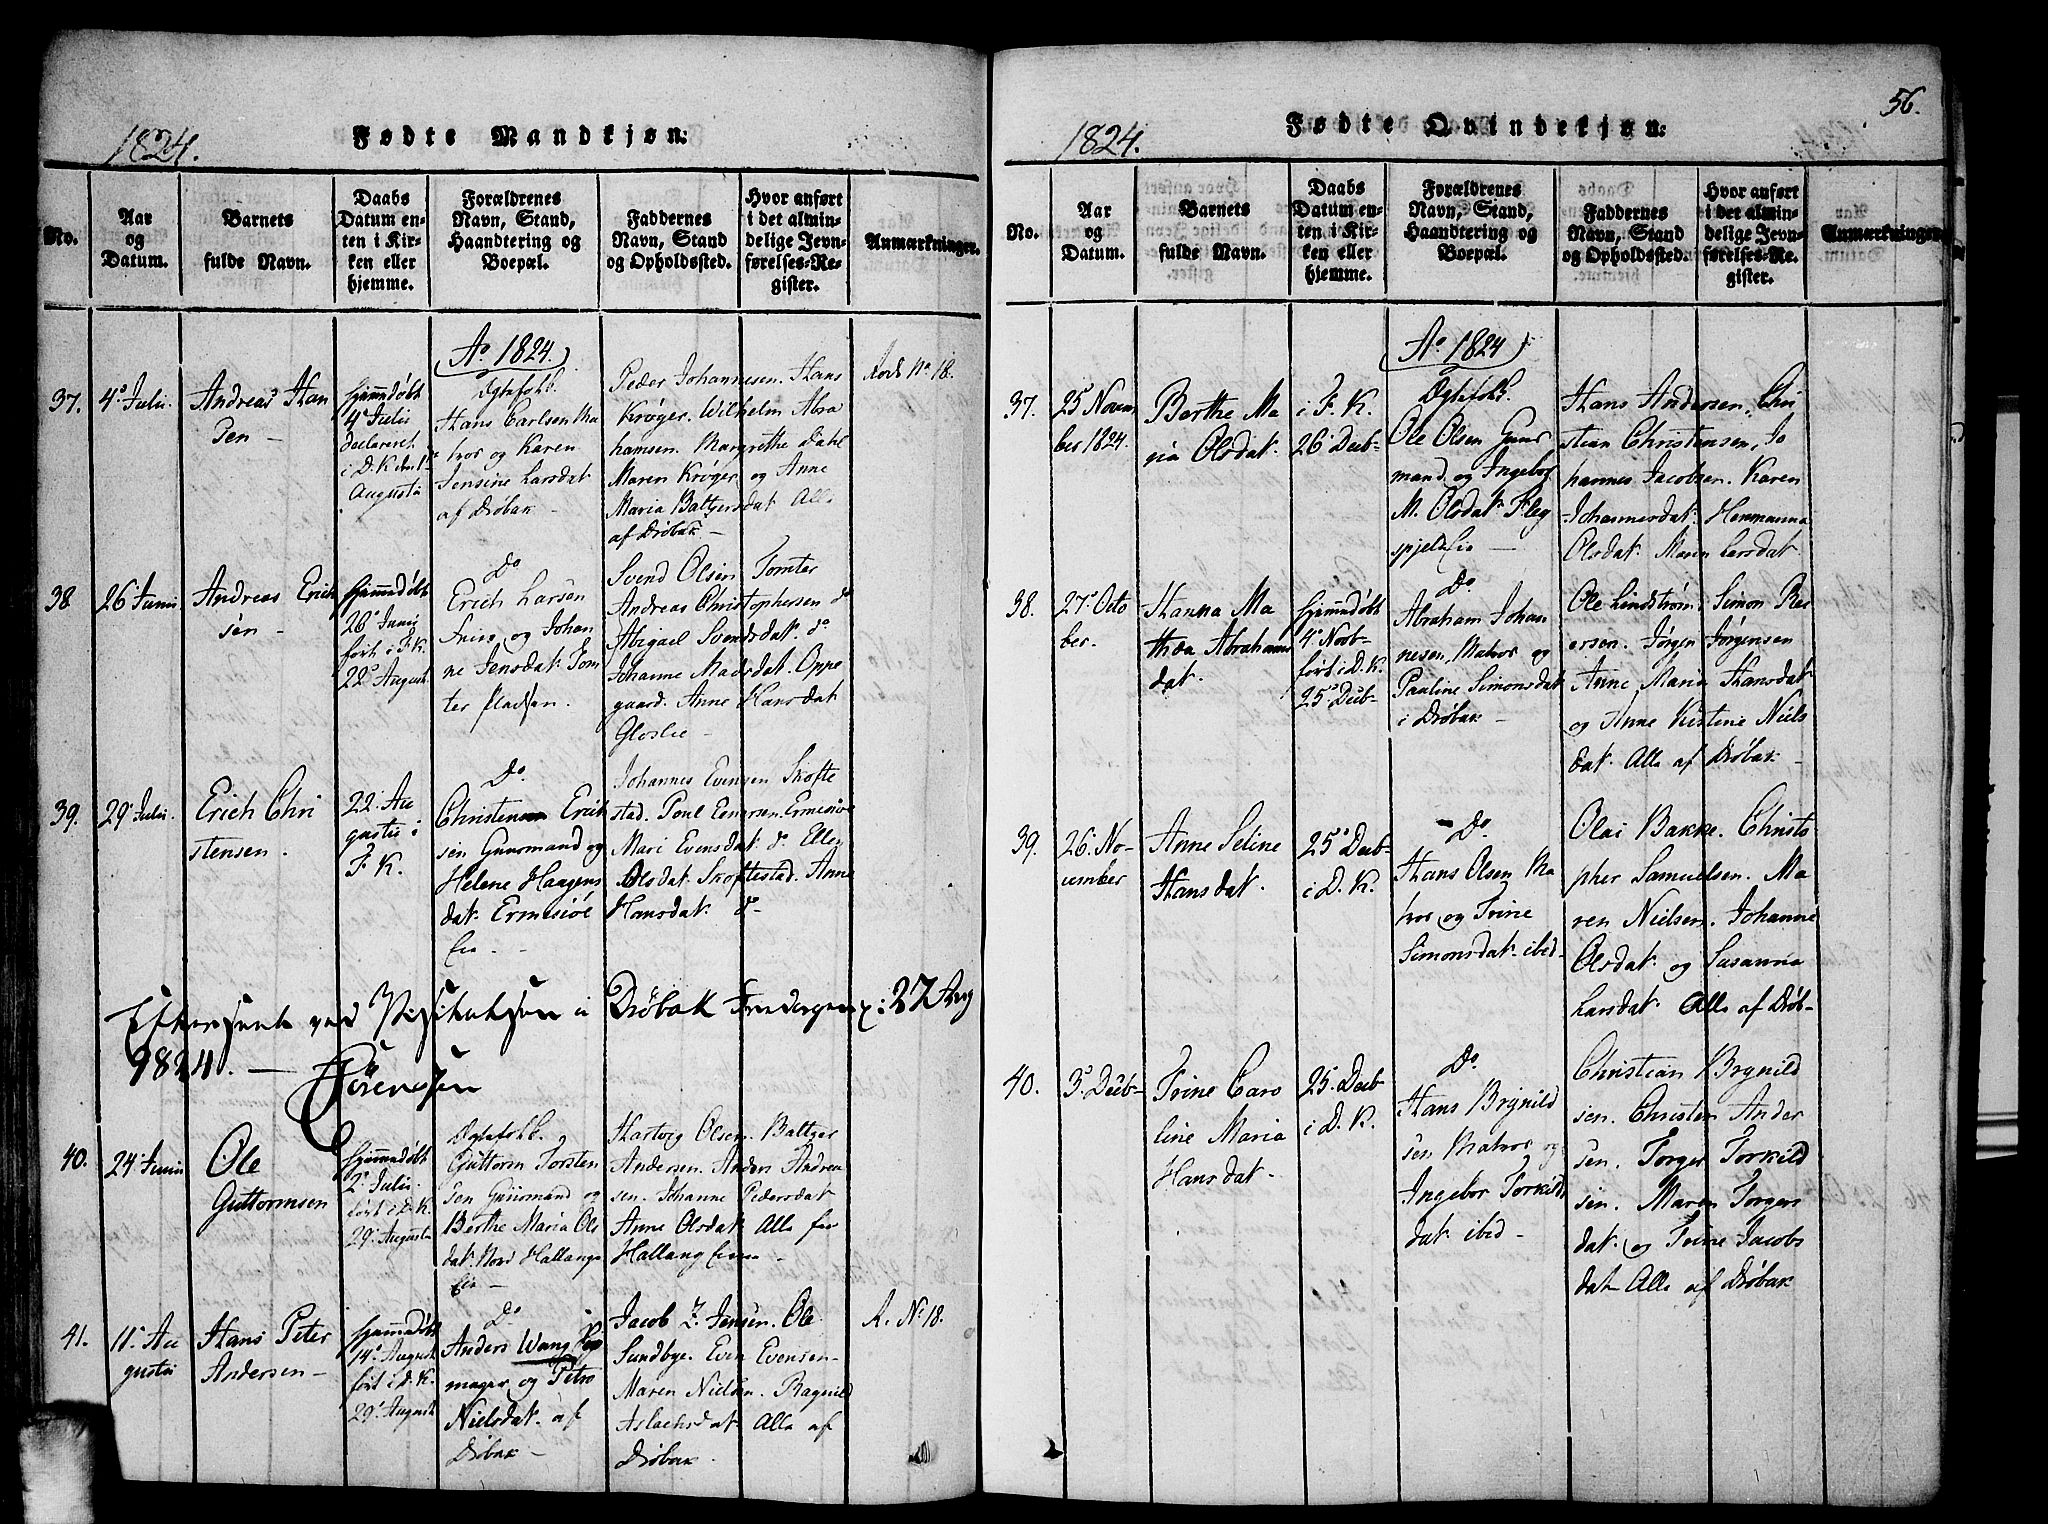 1824.
Fødte Mandkjøn:
No.
Aar
og
Datum.
Barnets
fulde Navn.
Daabs
Datum en-
ten i Kir-
ken eller
hjemme.
Forældrenes
Navn, Stand,
Haandtering og
Boepæl.
Faddernes
Navn, Stand
og Opholdssted.
Hvor anført
i det almin-
delige Jevn-
førelses-Re-
gister.
Anmærkninger.
Ao 1824.
37.
4de Julii.
Andreas Han
sen —
hjemmedøbt
4de Julii
declareret
i D. K. den 1ste
Augusti
Ægtefolk.
Hans Carlsen Ma
tros og Karen
Jensine Larsdat
af Drøbak —
Peder Johannesen. Hans
Krøger. Wilhelm Abra
hamsen. Margrethe Dahl
Maren Krøger og Anne
Maria Baltzersdat Alle
af Drøbak. —
No. 18.
38
26 Junii
Andreas Erich
sen —
hjemmedøbt
28 Junii
ført i F. K.
22de August
Do
Erich Larsen
og Johan
ne Jensdat. Tom
ter pladsen.
Svend Olsen Tomter
Andreas Christophersen do
Abigael Svendsdat. do
Johanne Madsdat. Oppe
gaard. Anne Hansdat
Gloslie —
39.
29 Julii.
Erich Chri
stensen.
22. Au
gusti i
F. K.
Do
Christen Erich
sen Guusmand og
Helene Haagens
dat. Ermesiøe
Eie —
Johannes Evensen Skofte
stad. Poul Enersen. Ermesiøe
Mari Evensdat do Ellen
Olsdat. Skoftestad. Anne
Hansdat. do
Efterseet ved Visitatsen i Drøbak Fredagen d: 27 Aug
1824. —
Sörensen
40.
24 Junii
Ole
Guttormsen
hjemmedøbt
2de Julii.
ført i D. K.
29. Augusti
Ægtefolk.
Guttorm Torsten
sen Guusmand og
Berthe Maria Ols
dat. Nord Hallange
Eie —
Hartvig Olsen. Baltzer
Andersen. Anders Andrea
sen. Johanne Pedersdat
Anne Olsdat Alle fra
Hallang Eierne —
41.
11te Au
gusti
Hans Peter
Andersen —
hjemmedøbt
14de August
ført i D. K.
29de August
Do
Anders Wang
mager og Petro
Nielsdat. af
Drøbak —
Jacob Z. Jensen. Ole
Sundbye. Even Evensen —
Maren Nielsen. Ragnild
Aslachsdat Alle af
Drøbak.
A. No 18.
56.
1824.
Fødte Qvindekjøn:
No.
Aar
og
Datum.
Barnets
fulde Navn.
Daabs
Datum en-
ten i Kir-
ken eller
hjemme.
Forældrenes
Navn, Stand,
Haandtering og
Boepæl.
Faddernes
Navn, Stand
og Opholdssted.
Hvor anført
i det almin-
delige Jevn-
førelses-Re-
gister.
Anmærkninger.
Ao 1824
37.
25 Novem
ber 1824.
Berthe Ma
ria Olsdat.
i F. K.
26 Decb-
Ægtefolk.
Ole Olsen Guus
mand og Ingebor
M. Olsdat. Fleg
spjeld Eie —
Hans Andersen, Chri
stian Christensen, Jo
hannes Jacobsen. Karen
Johannesdat. Hermanna
Olsdat. Maren Larsdat
38.
27. Octo
ber.
Hanna Ma
thea Abrahams
dat.
hjemmedøbt
4de Novb-
ført i D. K.
25 Decb-
Do
Abraham Johan
nesen, Matros og
Pauline Simonsdat
i Drøbak —
Ole Lindstrøm, Simon Rei
ersen. Jørgen Jørgensen
Anne Maria Hansdat
og Anne Kistine Niels
dat. Alle af Drøbak —
39.
26. No-
vember
Anne Seline
Hansdat.
25de Decb-
i D. K.
Do.
Hans Olsen Ma
tros og Trine
Simonsdat ibid-
Olai Bakke. Christo
pher Samuelsen. Ma
ren Nielsen. Johanne
Olsdat. og Susanna
Larsdat. Alle af Drøb-
40.
3de Decb-
Trine Caro
line Maria
Hansdat —
25. Decb
i D. K.
Do
Hans Brynild
sen Matros og
Ingebor Torkilds
dat ibid —
Christian Brynild
sen. Christen Ander
sen. Torger Torkild
sen. Maren Torgers
dat. og Trine Jacobs
dat Alle af Drøbak